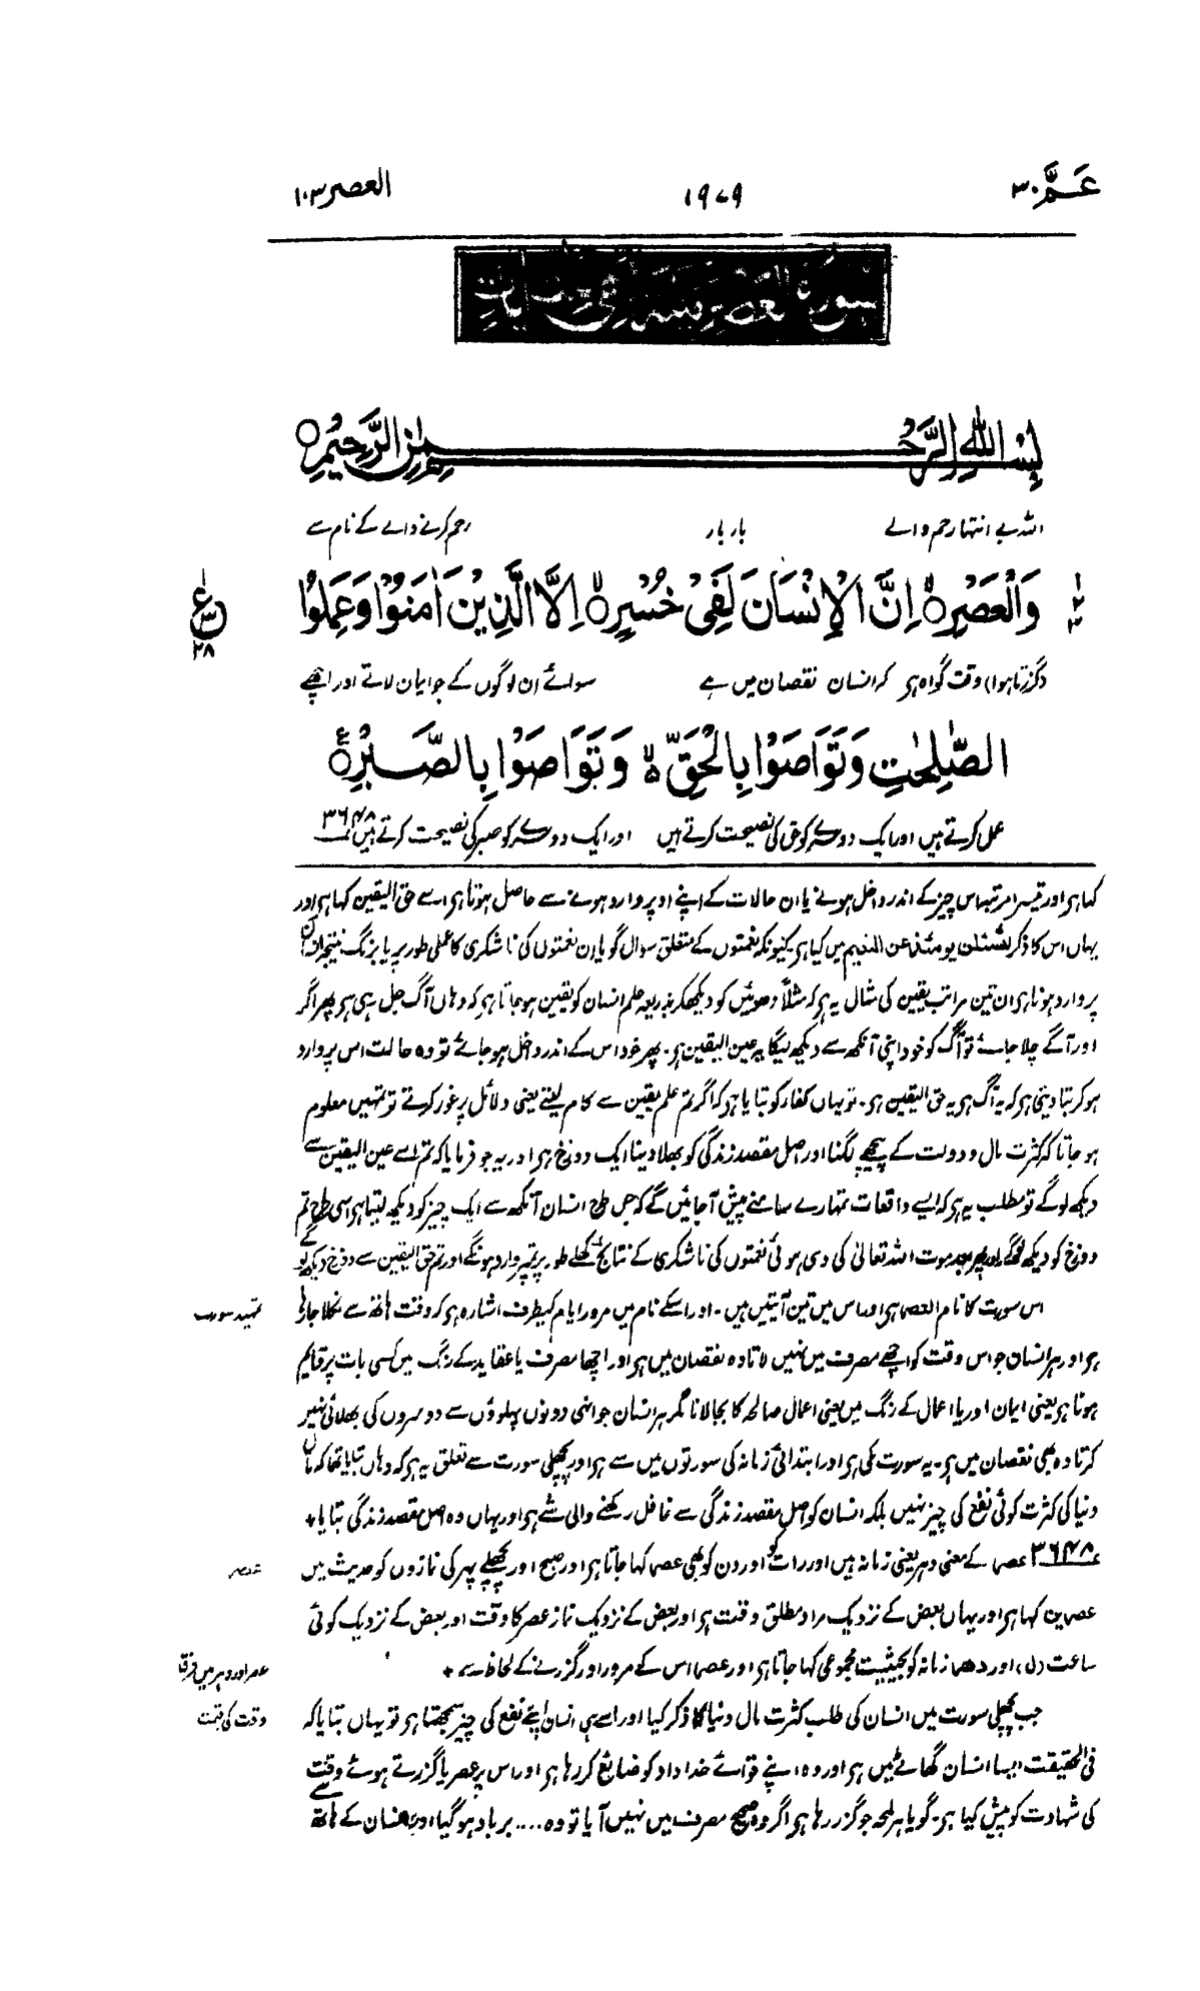 عَمَّ ۳۰
۱۹۷۹
العصر ۱۰۳
سورة العصر مكية وهي ثلث آيات
بِسْمِ اللّٰهِ الرَّحْمٰنِ الرَّحِيْمِ ○
اللہ بے انتہا رحم والے بار بار رحم کرنے والے کے نام سے
وَالْعَصْرِ ○ اِنَّ الْاِنْسَانَ لَفِيْ خُسْرٍ ○ اِلَّا الَّذِيْنَ اٰمَنُوْا وَعَمِلُوا
ع
۲۸
(گزرتا ہوا) وقت گواہ ہر کہ انسان نقصان میں ہے سوائے ان لوگوں کے جو ایمان لاتے اور اچھے
الصّٰلِحٰتِ وَتَوَاصَوْا بِالْحَقِّ ۙ وَتَوَاصَوْا بِالصَّبْرِ ○
عمل کرتے ہیں اور ایک دوسرے کو حق کی نصیحت کرتے ہیں اور ایک دوسرے کو صبر کی نصیحت کرتے ہیں ۳۶۴۸
کہا ہر اور تیسرا مرتبہ اس چیز کے اندر داخل ہونے یا ان حالات کے اپنے اوپر وارد ہونے سے حاصل ہوتا ہر اسے حق الیقین کہا ہر اور
یہاں اس کا ذکر لتسئلن یومئذ عن النعیم میں کیا ہر کیونکہ نعمتوں کے متعلق سوال گویا ان نعمتوں کی ناشکری کا عملی طور پر یا بزنگ نتیجہ ان
پر وارد ہونا ہر ان تین مراتب یقین کی مثال یہ ہر کہ مثلاً دھوئیں کو دیکھکر بذریعہ علم انسان کو یقین ہو جاتا ہر کہ وہاں آگ جل رہی ہر پھر اگر
اور آگے چلا جائے تو آگ کو خود اپنی آنکھ سے دیکھ لیگا یہ عین الیقین ہر۔ پھر خود اس کے اندر داخل ہو جائے تو وہ حالت اس پر وارد
ہو کر بتا دیتی ہر کہ یہ آگ ہر یہ حق الیقین ہر۔ تو یہاں کفار کو بتایا ہر کہ اگر تم علم یقین سے کام لیتے یعنی دلائل پر غور کرتے تو تمہیں معلوم
ہو جاتا کہ کثرت مال و دولت کے پیچھے لگنا اور اصل مقصد زندگی کو بھلا دینا ایک دوزخ ہر اور یہ جو فرمایا کہ تم اسے عین الیقین سے
دیکھ لو گے تو مطلب یہ ہر کہ ایسے واقعات تمہارے سامنے پیش آجائیں گے کہ جس طرح انسان آنکھ سے ایک چیز کو دیکھ لیتا ہر اسی طرح تم
دوزخ کو دیکھ لو گے اور پھر بعد موت اللہ تعالیٰ کی دی ہوئی نعمتوں کی ناشکری کے نتائج کھلے طور پر تم پر وارد ہونگے اور تم حق الیقین سے دوزخ دیکھ لو گے
اس سورت کا نام العصر ہر اور اس میں تین آیتیں ہیں۔ اور اسکے نام میں مرور ایام کیطرف اشارہ ہر کہ وقت ہاتھ سے نکلا جاتا
تمہید سورت
ہر اور ہر انسان جو اس وقت کو اچھے مصرف میں نہیں لاتا وہ نقصان میں ہر اور اچھا مصرف یا عقاید کے رنگ میں کسی بات پر قایم
ہونا ہر یعنی ایمان اور یا اعمال کے رنگ میں یعنی اعمال صالحہ کا بجا لانا مگر ہر انسان جو انہی دونوں پہلوؤں سے دوسروں کی بھلائی نہیں
کرتا وہ بھی نقصان میں ہر۔ یہ سورت مکی ہر اور ابتدائی زمانہ کی سورتوں میں سے ہر اور پچھلی سورت سے تعلق یہ ہر کہ وہاں بتایا تھا کہ مال
دنیا کی کثرت کوئی نفع کی چیز نہیں بلکہ انسان کو اصل مقصد زندگی سے غافل رکھنے والی شے ہر اور یہاں وہ اصل مقصد زندگی بتایا +
۳۶۴۸ عصر کے معنی دہر یعنی زمانہ ہیں اور رات کو اور دن کو بھی عصر کہا جاتا ہر اور صبح اور پچھلے پہر کی نمازوں کو حدیث میں
عصر
عصرین کہا ہر اور یہاں بعض کے نزدیک مراد مطلق وقت ہر اور بعض کے نزدیک نماز عصر کا وقت اور بعض کے نزدیک کوئی
ساعت (ل) اور دھر زمانہ کو بحیثیت مجموعی کہا جاتا ہر اور عصر اس کے مرور اور گزرنے کے لحاظ سے +
عصر اور دہر میں فرق
جب پچھلی سورت میں انسان کی طلب کثرت مال دنیا کا ذکر کیا اور اسے ہی انسان اپنے نفع کی چیز سمجھتا ہر تو یہاں بتایا کہ
وقت کی قیمت
فی الحقیقت ایسا انسان گھاٹے میں ہر اور وہ اپنے قوائے خداداد کو ضایع کر رہا ہر اور اس پر عصر یا گزرتے ہوئے وقت
کی شہادت کو پیش کیا ہر۔ گویا ہر لمحہ جو گزر رہا ہر اگر وہ صحیح مصرف میں نہیں آیا تو وہ .... برباد ہو گیا اور انسان کے ہاتھ سے